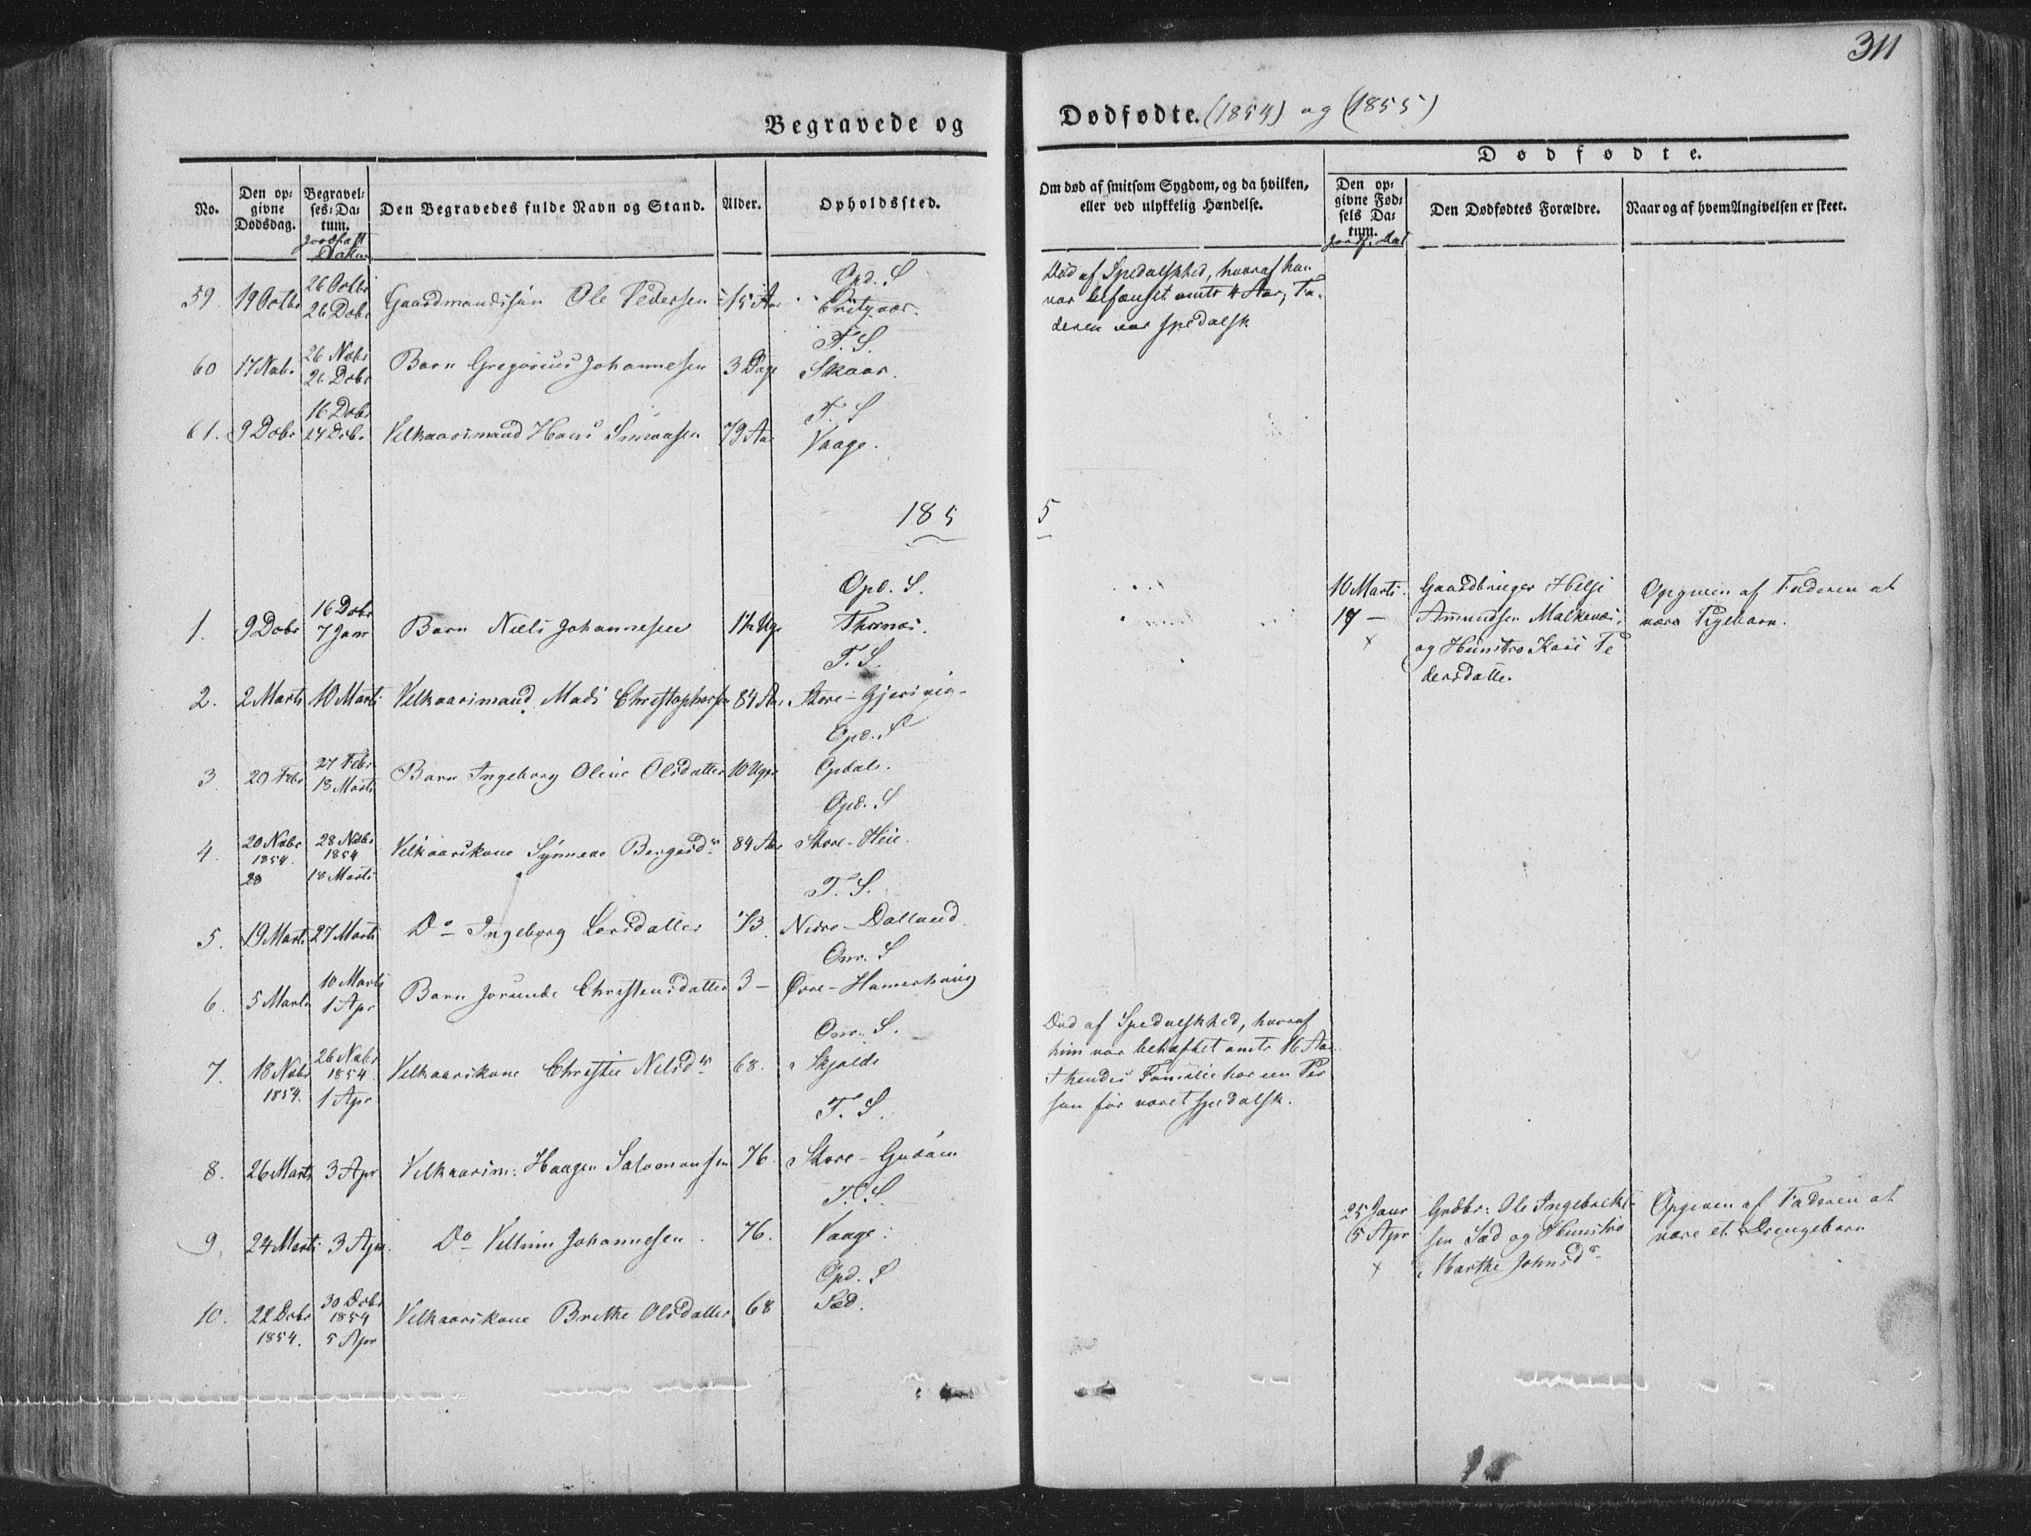 311
Begravede og Dødfødte. (1854) og (1855)
No.
Den op-
givne
Dødsdag.
Begravel-
ses-Da-
tum.
Jordfæst
Datum
Den Begravedes fulde Navn og Stand.
Alder.
Opholdssted.
Om død af smitsom Sygdom, og da hvilken,
eller ved ulykkelig Hændelse.
Dødfødte.
Den op-
givne Fød-
sels Da-
tum.
Den Dødfødtes Forældre.
Naar og af hvem Angivelsen er skeet.
59. 19 Octbr 26 Octbr 26 Dcbr Gaardmandssøn Ole Pedersen 15 Aar Opd. S
Død af Spedalskhed, hvoraf han
var befænget omtr 4 Aar; Fa-
deren var spedalsk
60 17 Nvbr 26 Nvbr 26 Dcbr Barn Gregorius Johannesen 3 Dage T. S. Skaar.
61. 9 Dcbr 16 Dcbr 27 Dcbr Velkaarsmand Hans Simonsen 79 Aar T. S Vaage.
1855
1. 9 Dcbr 16 Dcbr 7 Janr Barn Niels Johannesen Uge Opd. S. Thornæs.
10 Marts.
17 —
x
Gaardbruger Helje
Amundsen Malkenæs,
og Hunstro Kari Pe
dersdatter.
Opgiven af Faderen at
være Pigebarn.
2. 2 Marts 10 Marts Velkaarsmand Mads Christophersen 84 Aar T. S. Store-Gjerivig
3. 20 Febr 27 Febr 18 Marts Barn Ingeborg Oline Olsdatter 10 Uger Opd. S Opdal.
4. 20 Nvbr 1854. 28 28 Nvbr 1854 18 Marts Velkaarskone Synneve Bergesdr 84 Aar Opd. S Store-Heie.
5. 19 Marts 27 Marts Do Ingeborg Larsdatter 73. T. S. Nedre-Dalland
6. 5 Marts 10 Marts 1 Apr Barn Jorunde Christensdatter 3 — Onr. S Øvre-Hamerhaug
7. 18 Nvbr 1854. 26 Nvbr 1854. 1 Apr Velkaarskone Christie Nilsdr 68. Onr. S. Skjelde
Død af Spedalskhed, hvoraf
hun var behæftet omtr 16 Aar
I hendes Familie har een Per
son før været spedalsk.
8. 26 Marts 3 Apr Velkaarsm: Haagen Salomonsen 76. T. S. Store-Gudøen
9. 24 Marts 3 Apr. Do Villum Johannesen. 76. T. S Vaage.
25 Janr
5 Apr
x
Grdbr: Ole Ingebrikt-
sen Sæd og Hunstro
Marthe Johnsdr
Opgiven af Faderen at
være et Drengebarn
10. 22 Dcbr 1854. 30 Dcbr 1854 5 Apr Velkaarskone Brithe Olsdatter 68 Opd. S Sæd.